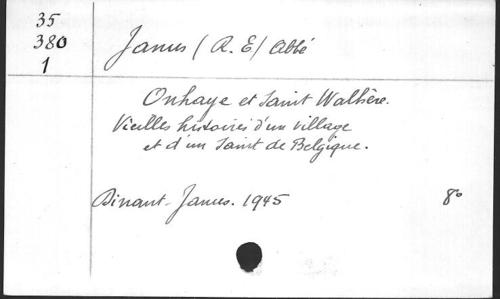 35
380
1
Janus (R. E) Abbé
Onhaye et Saint Walhère.
Vieilles histoires d'un village
et d'un Saint de Belgique.
Dinant - Janus. 1945 8°